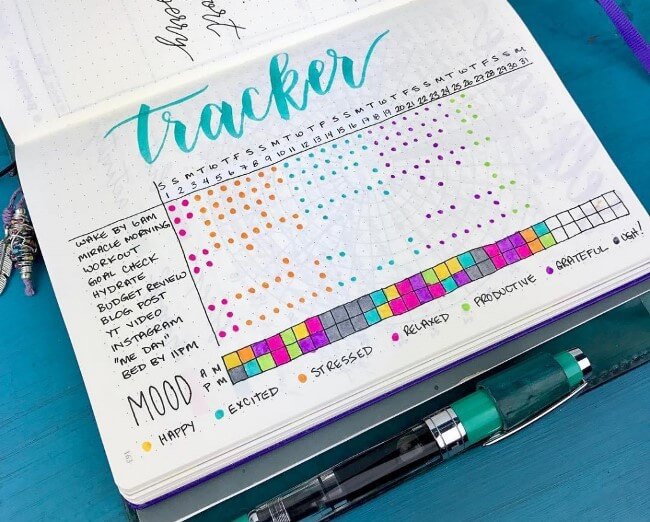 tracker
S S M T W T F S S M T W T F S S M T W T F S S M T W T F S S M
1 2 3 4 5 6 7 8 9 10 11 12 13 14 15 16 17 18 19 20 21 22 23 24 25 26 27 28 29 30 31
WAKE BY 6AM
MIRACLE MORNING
WORKOUT
GOAL CHECK
HYDRATE
BUDGET REVIEW
BLOG POST
YT VIDEO
INSTAGRAM
"ME DAY"
BED BY 11PM
MOOD
AM
PM
HAPPY EXCITED STRESSED RELAXED PRODUCTIVE GRATEFUL UGH!